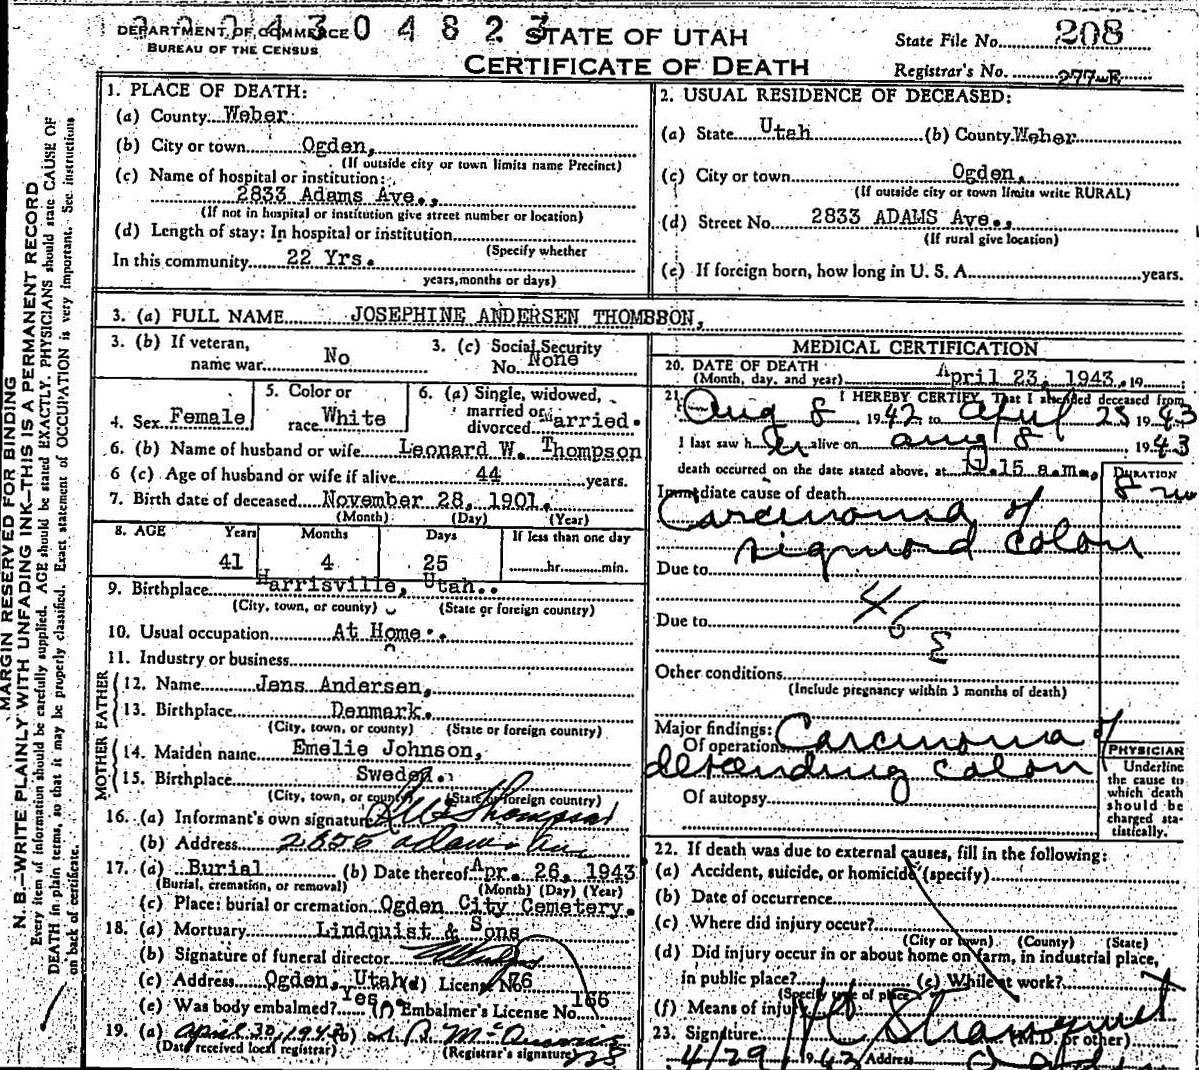 DEPARTMENT OF COMMERCE
BUREAU OF THE CENSUS
0 4 8 2 3
STATE OF UTAH
CERTIFICATE OF DEATH
State File No. 208
Registrar's No. 277-E
MARGIN RESERVED FOR BINDING
N. B.—WRITE PLAINLY WITH UNFADING INK—THIS IS A PERMANENT RECORD
Every item of information should be carefully supplied. AGE should be stated EXACTLY. PHYSICIANS should state CAUSE OF
DEATH in plain terms, so that it may be properly classified. Exact statement of OCCUPATION is very important. See instructions
on back of certificate.
1. PLACE OF DEATH:
(a) County Weber
(b) City or town Ogden,
(If outside city or town limits name Precinct)
(c) Name of hospital or institution:
2833 Adams Ave.,
(If not in hospital or institution give street number or location)
(d) Length of stay: In hospital or institution
(Specify whether
In this community 22 Yrs.
years, months or days)
2. USUAL RESIDENCE OF DECEASED:
(a) State Utah (b) County Weber
(c) City or town Ogden,
(If outside city or town limits write RURAL)
(d) Street No. 2833 ADAMS Ave.,
(If rural give location)
(e) If foreign born, how long in U. S. A. years.
3. (a) FULL NAME JOSEPHINE ANDERSEN THOMBSON,
3. (b) If veteran, name war No
3. (c) Social Security No. None
4. Sex Female
5. Color or race White
6. (a) Single, widowed, married or divorced Married.
6. (b) Name of husband or wife Leonard W. Thompson
6 (c) Age of husband or wife if alive 44 years.
7. Birth date of deceased November 28, 1901.
(Month) (Day) (Year)
8. AGE Years Months Days If less than one day
41 4 25 hr. min.
9. Birthplace Harrisville, Utah..
(City, town, or county) (State or foreign country)
10. Usual occupation At Home.
11. Industry or business
FATHER
12. Name Jens Andersen,
13. Birthplace Denmark.
(City, town, or county) (State or foreign country)
MOTHER
14. Maiden name Emelie Johnson,
15. Birthplace Sweden.
(City, town, or county) (State or foreign country)
16. (a) Informant's own signature Thompson
(b) Address Adams Ave
17. (a) Burial (b) Date thereof Apr. 26, 1943
(Burial, cremation, or removal) (Month) (Day) (Year)
(c) Place: burial or cremation Ogden City Cemetery.
18. (a) Mortuary Lindquist & Sons
(b) Signature of funeral director
(c) Address Ogden, Utah (d) License No. 76
(e) Was body embalmed? Yes. (f) Embalmer's License No. 166
19. (a) April 30, 1943 (b)
(Date received local registrar) (Registrar's signature)
MEDICAL CERTIFICATION
20. DATE OF DEATH
(Month, day, and year) April 23, 1943. , 19 ;
21. I HEREBY CERTIFY, That I attended deceased from
Aug 8, 1942 to April 23 1943
I last saw her alive on Aug 8 1943
death occurred on the date stated above, at .15 a.m.
DURATION
Immediate cause of death
Carcinoma of
sigmoid colon
Due to
46
Due to
E
Other conditions
(Include pregnancy within 3 months of death)
Major findings:
Of operations Carcinoma of
descending colon
Of autopsy
PHYSICIAN
Underline
the cause to
which death
should be
charged sta-
tistically.
22. If death was due to external causes, fill in the following:
(a) Accident, suicide, or homicide (specify)
(b) Date of occurrence
(c) Where did injury occur?
(City or town) (County) (State)
(d) Did injury occur in or about home on farm, in industrial place,
in public place? (e) While at work?
(Specify type of place)
(f) Means of injury
23. Signature (M.D. or other)
4/29 1943 Address